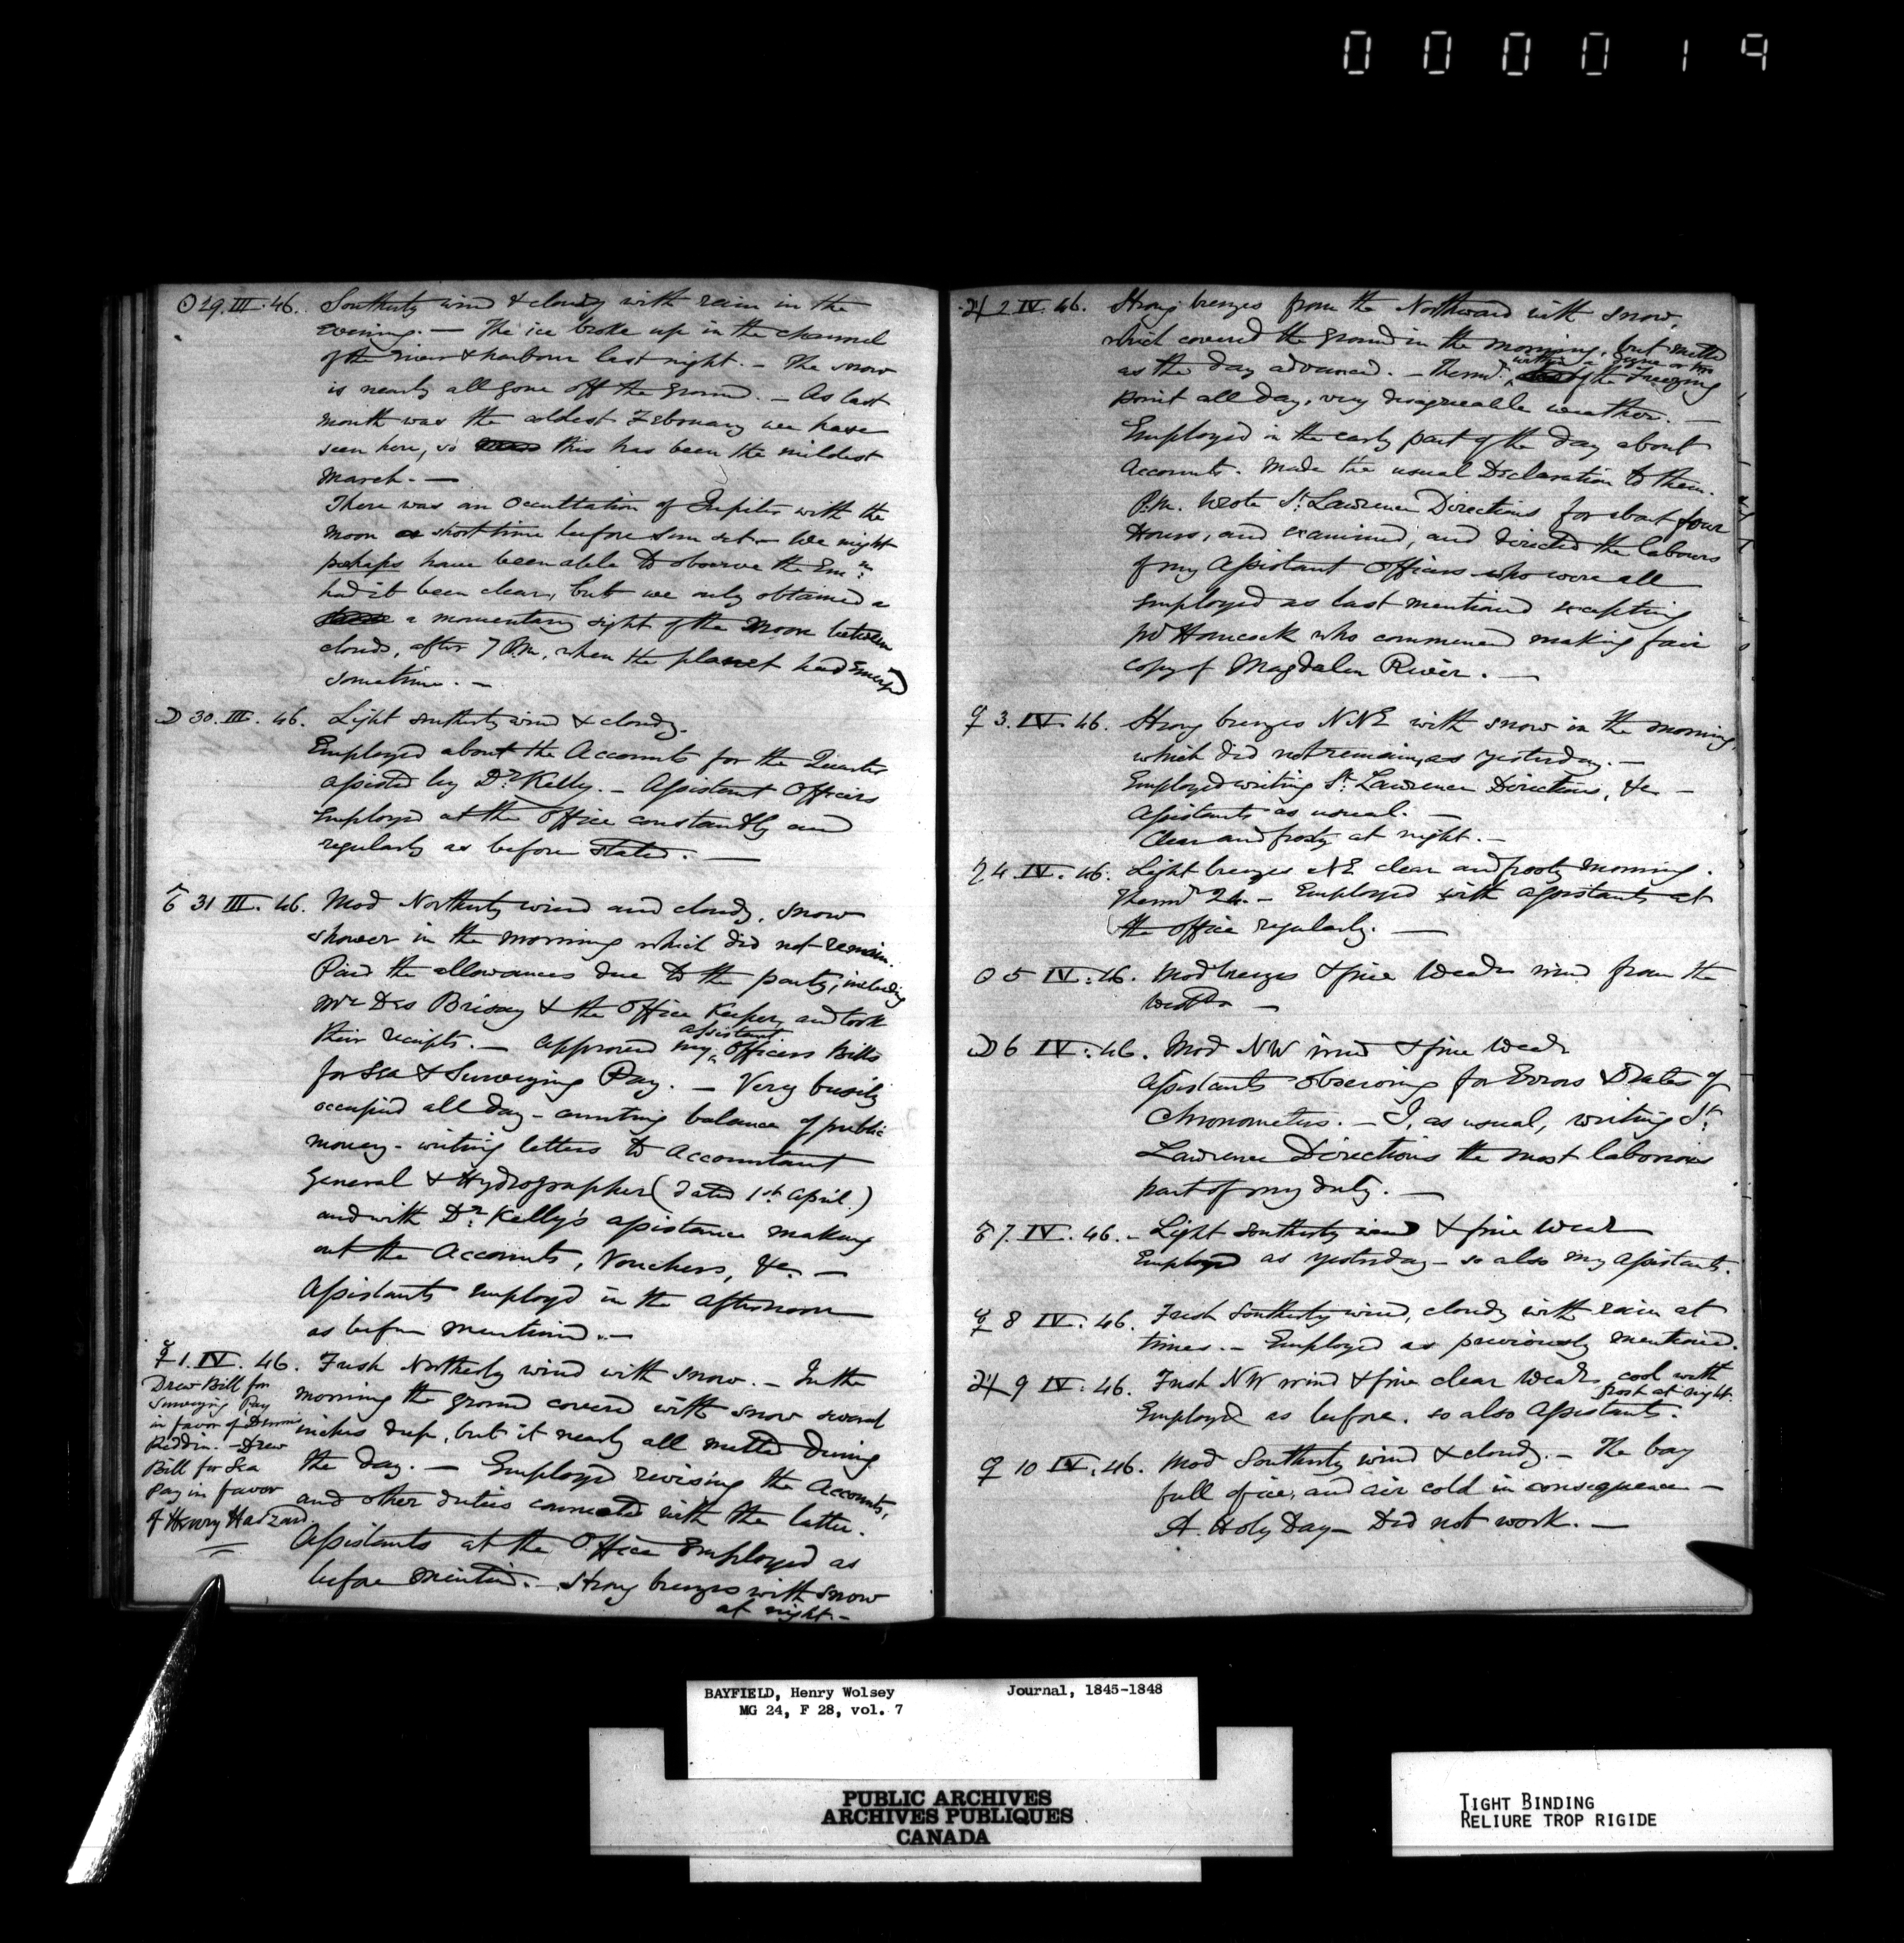 000019
☉ 29. III. 46. Southerly wind & cloudy with rain in the
evening. — The ice broke up in the channel
of the river & harbour last night. — The snow
is nearly all gone off the ground. — As last
month was the coldest February we have
seen here, so this has been the mildest
March. —
There was an Occultation of Jupiter with the
Moon a short time before sun set — We might
perhaps have been able to observe the Em.n
had it been clear, but we only obtained a
a momentary sight of the Moon between
clouds, after 7 P.M., when the planet had emerged
sometime. —
☽ 30. III. 46. Light southerly wind & cloudy.
Employed about the Accounts for the Quarter
assisted by Dr Kelly. — Assistant Officers
Employed at the Office constantly and
regularly as before stated. —
♂ 31 III. 46. Mod Northerly wind and cloudy, snow
shower in the morning which did not remain.
Paid the allowances due to the party, including
Mr Des Brisay & the Office Keeper, and took
their receipts. — Approved my assistant Officers Bills
for Sea & Surveying Pay. — Very busily
occupied all day — counting balance of public
money — writing letters to Accountant
General & Hydrographer (dated 1st April.)
and with Dr Kelly's assistance making
out the Accounts, Vouchers, &c. —
Assistants employd in the afternoon
as before mentioned. —
☿ 1. IV. 46. Fresh Northerly wind with snow. — In the
morning the ground covered with snow several
inches deep, but it nearly all melted during
the day. — Employed revising the Accounts,
and other duties connected with the latter.
Assistants at the Office Employed as
before mentiond. — Strong breezes with snow
at night. —
Drew Bill for
Surveying Pay
in favor of Dennis
Reddin. — Drew
Bill for Sea
Pay in favor
of Henry Haszard.
♃ 2 IV. 46. Strong breezes from the Northward with snow,
which covered the ground in the morning, but melted
as the day advanced. — Thermr. within a degree or two of the Freezing
point all day, very disagreeable weather. —
Employed in the early part of the day about
Accounts. Made the usual Declaration to them.
P.M. Wrote St Lawrence Directions for about four
Hours, and examined, and directed the labours
of my Assistant Officers who were all
employed as last mentioned excepting
Mr Hancock who commenced making fair
copy of Magdalen River. —
♀ 3. IV. 46. Strong breezes NNE with snow in the morning
which did not remain, as yesterday. —
Employed writing St Lawrence Directions, &c —
Assistants as usual. —
Clear and frosty at night. —
♄ 4 IV. 46. Light breezes NE clear and frosty morning.
Thermr 24. — Employed with assistants at
the office regularly. —
☉ 5 IV. 46. Mod breezes & fine Weadr wind from the
Westd —
☽ 6 IV. 46. Mod NW wind & fine Weadr
Assistants observing for Errors & Rates of
Chronometers. — I, as usual, writing St.
Lawrence Directions the most laborious
part of my duty. —
♂ 7. IV. 46. — Light southerly wind & fine Weadr
Employed as yesterday — so also my Assistants.
☿ 8 IV. 46. Fresh Southerly wind, cloudy with rain at
times. — Employed as previously mentioned.
♃ 9 IV. 46. Fresh NW wind & fine clear Weadr, cool with
frost at night.
Employed as before. so also Assistants.
♀ 10 IV. 46. Mod Southerly wind & cloudy. — The bay
full of ice, and air cold in consequence —
A. Holy Day — Did not work. —
BAYFIELD, Henry Wolsey Journal, 1845-1848
MG 24, F 28, vol. 7
PUBLIC ARCHIVES
ARCHIVES PUBLIQUES
CANADA
TIGHT BINDING
RELIURE TROP RIGIDE